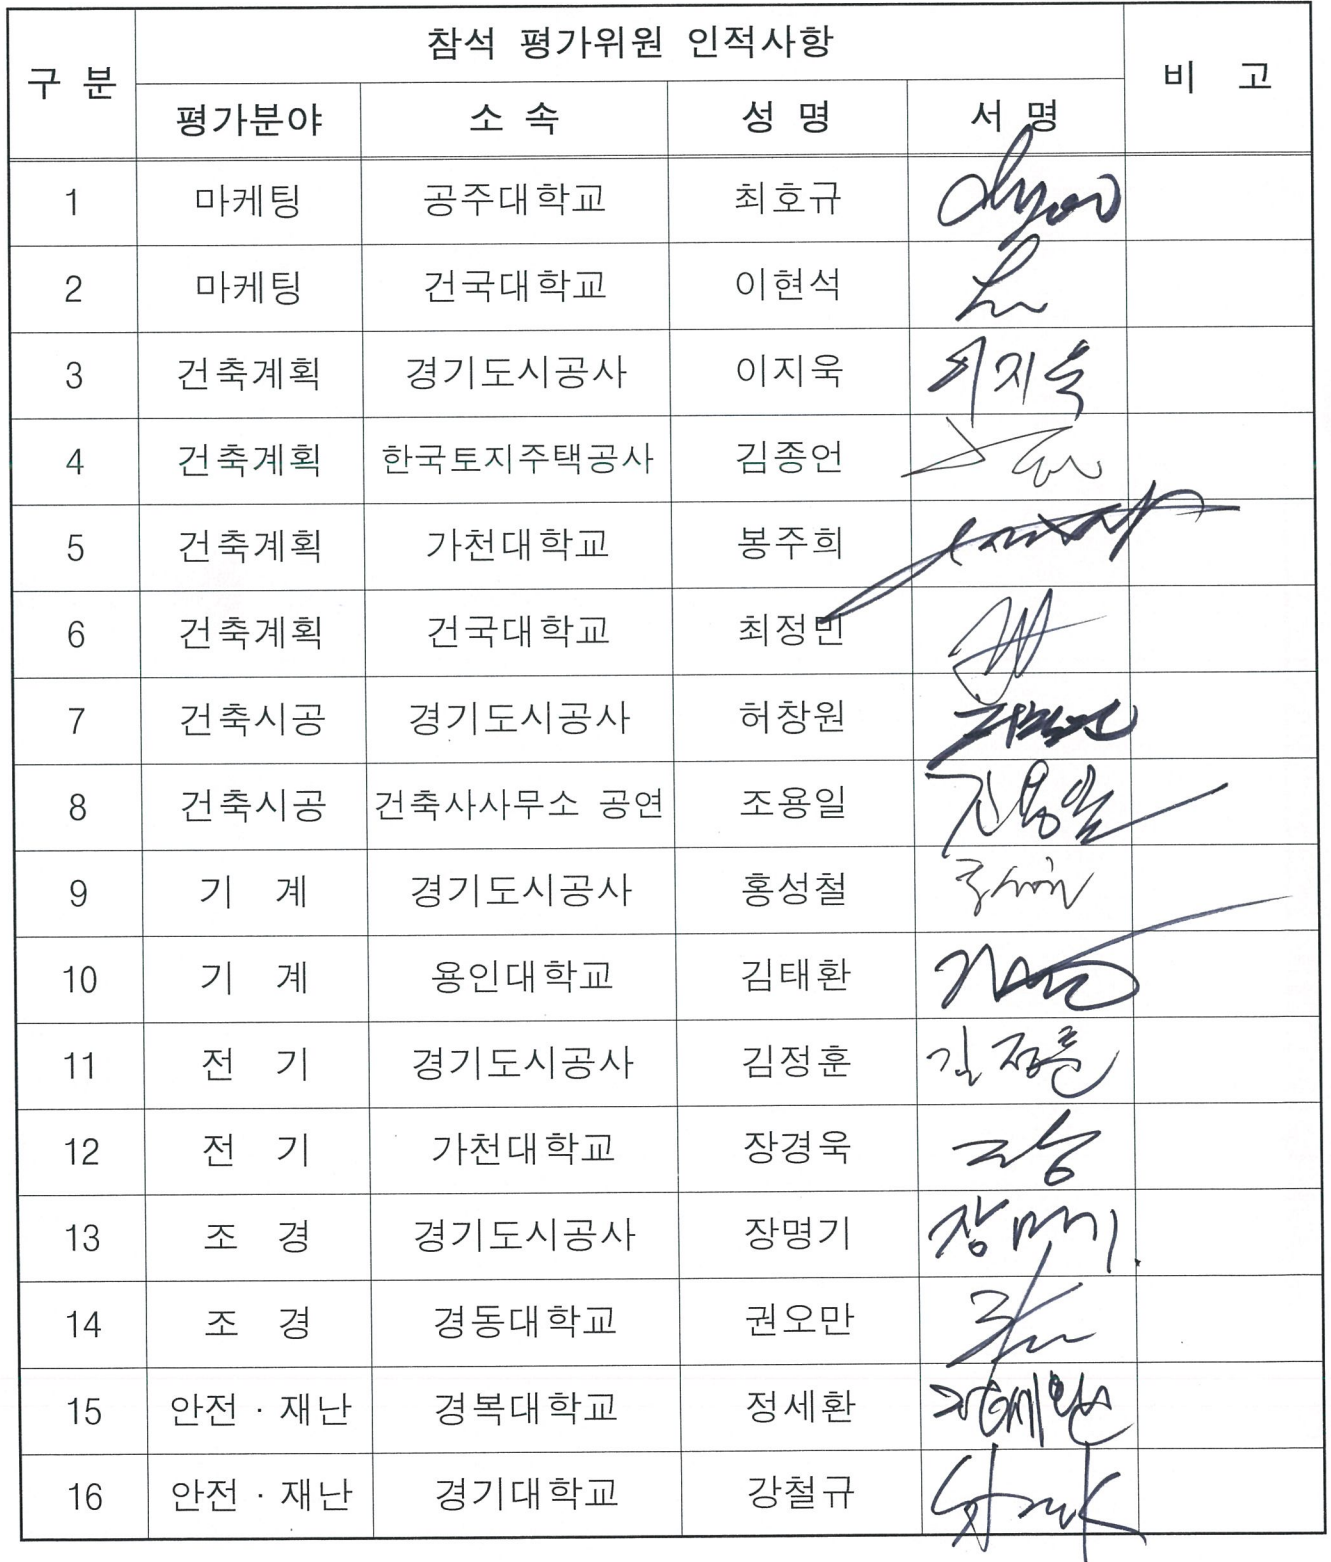 구 분 참석 평가위원 인적사항 비 고
평가분야 소 속 성 명 서 명
1 마케팅 공주대학교 최호규
2 마케팅 건국대학교 이현석
3 건축계획 경기도시공사 이지욱 이지욱
4 건축계획 한국토지주택공사 김종언
5 건축계획 가천대학교 봉주희
6 건축계획 건국대학교 최정민
7 건축시공 경기도시공사 허창원
8 건축시공 건축사사무소 공연 조용일
9 기 계 경기도시공사 홍성철
10 기 계 용인대학교 김태환
11 전 기 경기도시공사 김정훈 김정훈
12 전 기 가천대학교 장경욱
13 조 경 경기도시공사 장명기 장명기
14 조 경 경동대학교 권오만
15 안전 · 재난 경복대학교 정세환
16 안전 · 재난 경기대학교 강철규